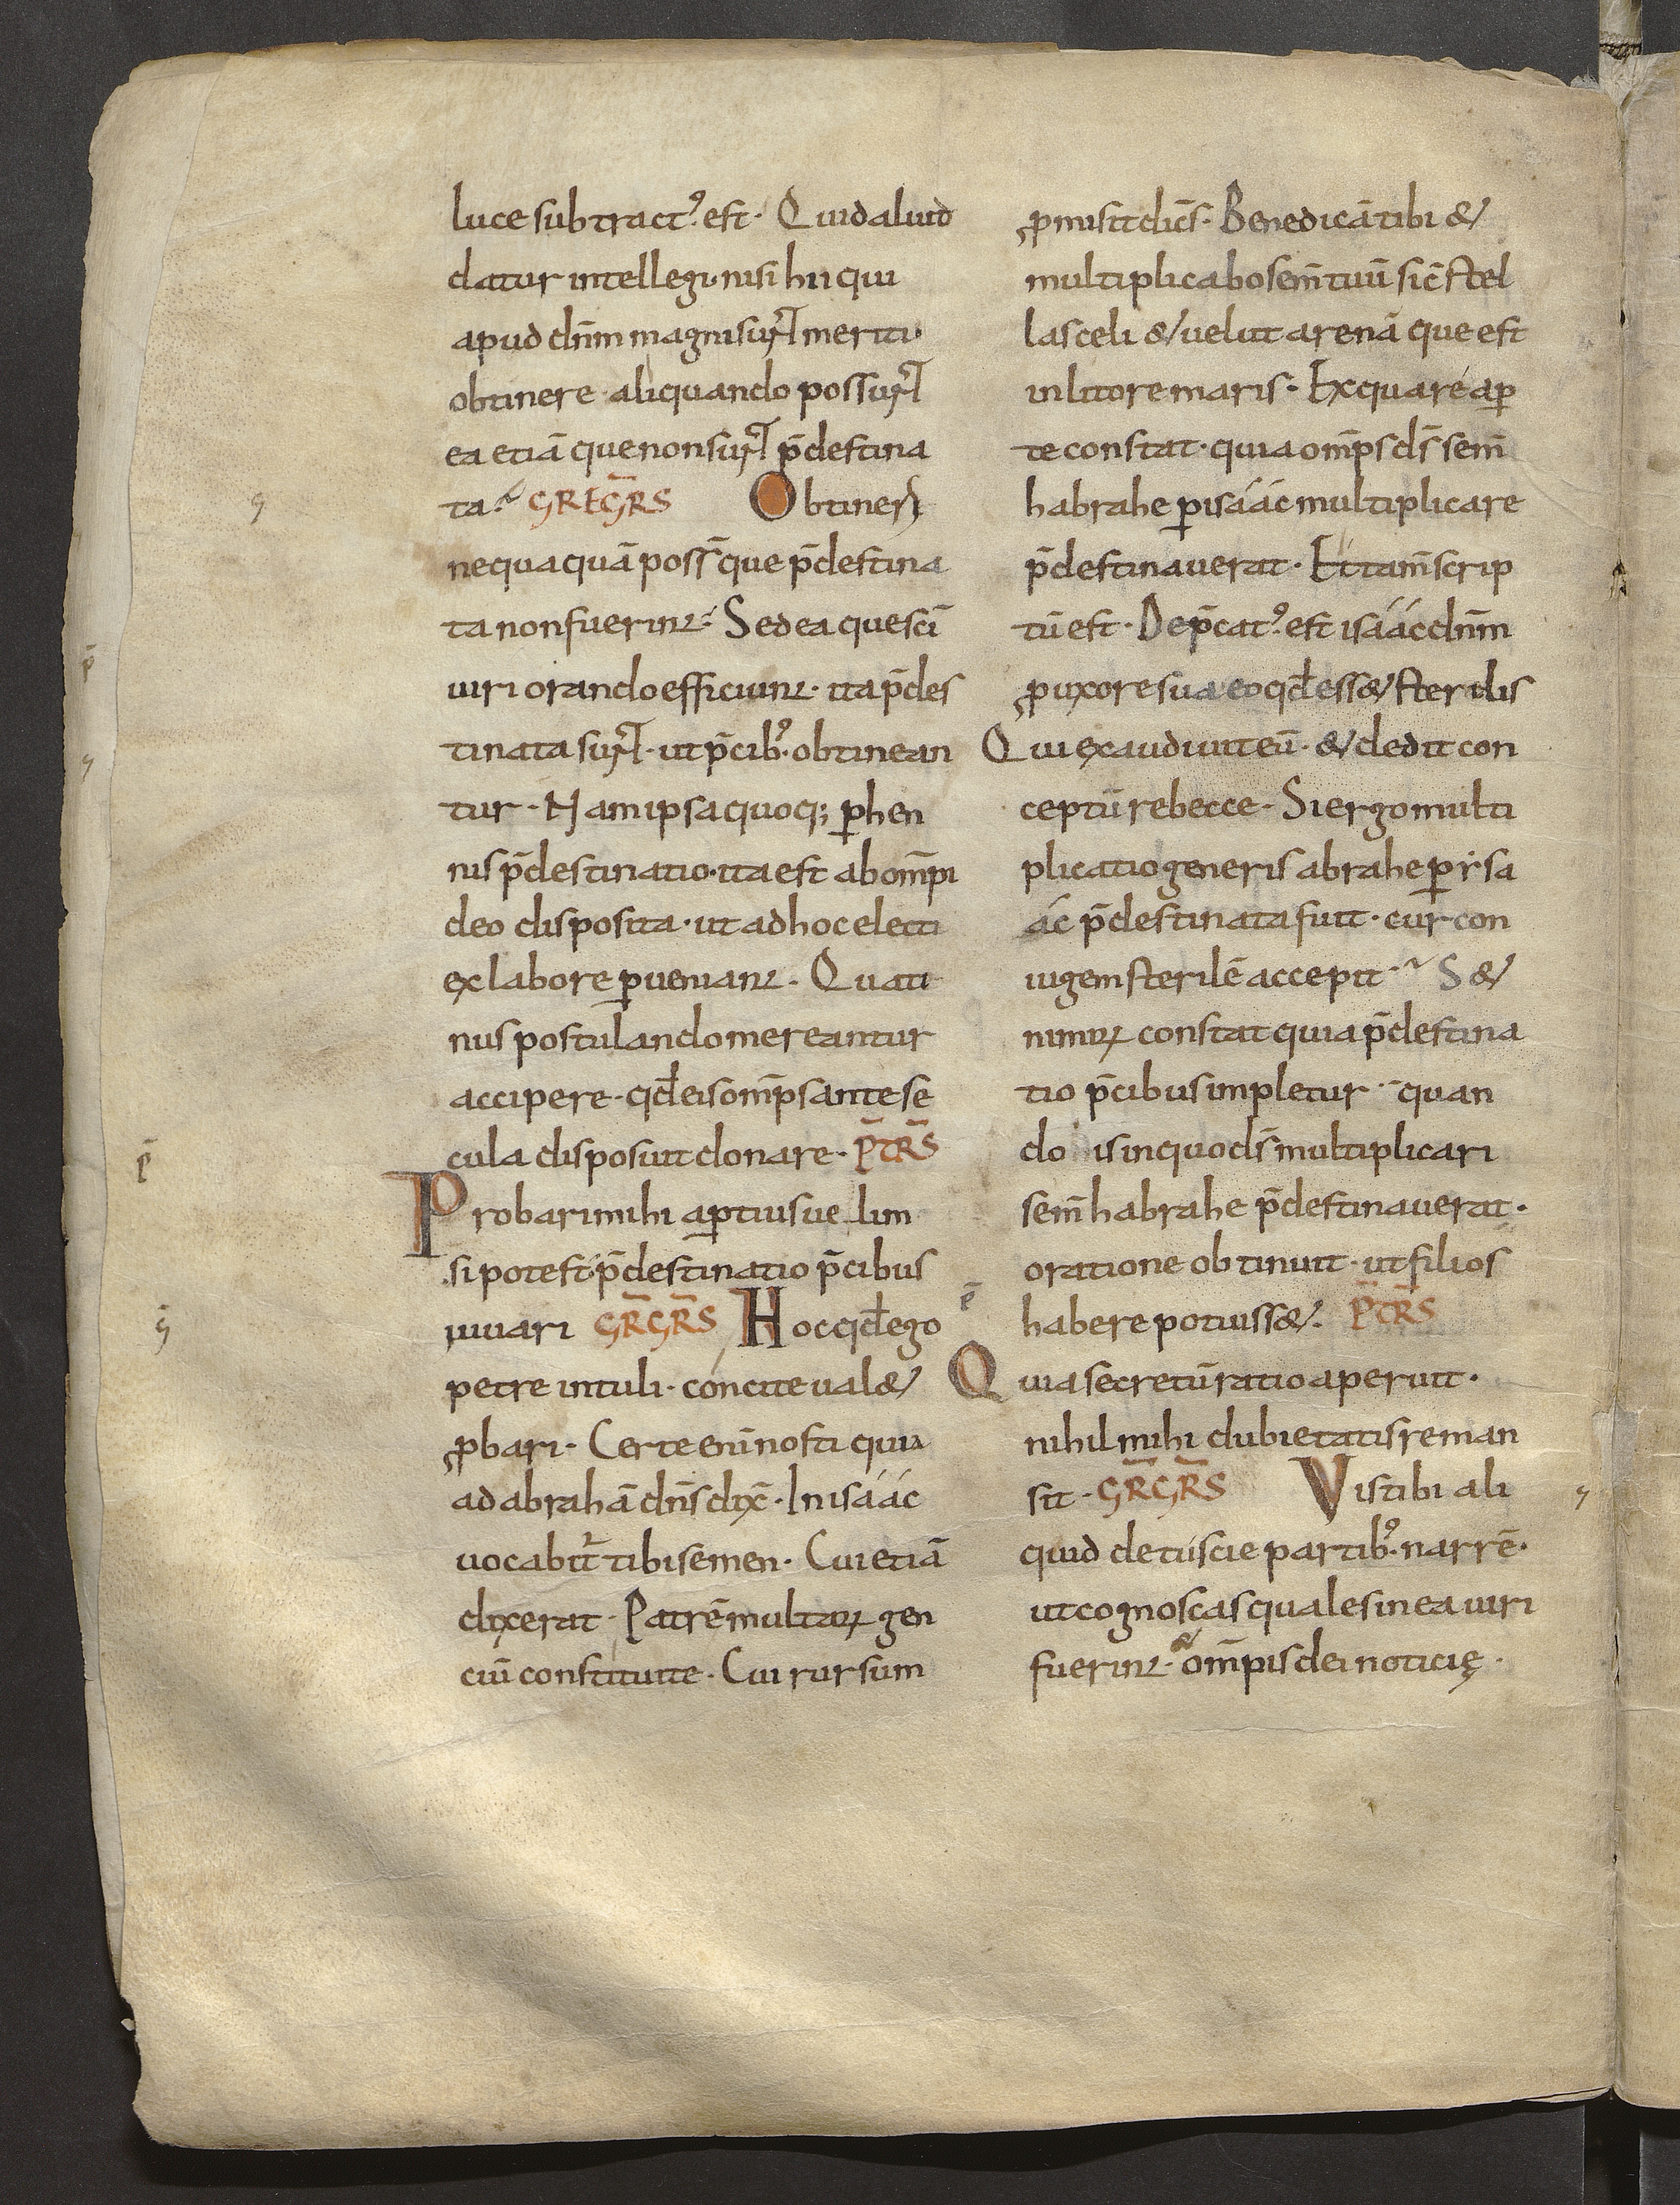 luce subtract᾽ est · Quid aliud
datur intellegi · nisi hii qui
apud dn̄m magni sunt meriti ·
obtinere · aliquando possunt
ea etiā que non sunt p̄destina
ta · GREGR̄S Obtineri
nequaquā poss̄ que p̄destina
ta non fuerint · Sed ea que sc̄i
uiri orando efficiunt · ita p̄des
tinata sunt · ut p̄cib᾽ · obtinean
tur · Nam ipsa quoq; ꝑhen
nis p̄destinatio · ita est ab om̄pi
deo disposita · ut ad hoc electi
ex labore ꝑueniant · Quati
nus postulando mereantur
accipere · qd̄ eis om̄ps ante se
cula disposuit donare · P̄TR̄S
Probari mihi aꝑtius ue lim
si potest · p̄destinatio p̄cibus
iuuari GR̄GR̄S Hoc qd̄ ego
petre intuli · cóncite ualet
ꝓbari · Certe enī nosti quia
ad abrahā dn̄s dix̄ · In isáác
uocabit̄ tibi semen · Cui etiā
dixerat · Patrē multarꝝ gen
ciū constitui te · Cui rursum
ꝓmisit dic̄s · Benedicā tibi &
multiplicabo sem̄ tuū sic̄ stel
las celi & uelut arenā que est
in litore maris · Ex qua re aꝑ
te constat · quia om̄ps ds̄ sem̄
habrahe ꝑ isáác multiplicare
p̄destinauerat · Et tam̄ scrip
tū est · Dep̄cat᾽ est isáác dn̄m
ꝓ uxore sua eo qd̄ ess& sterilis
Qui exaudiuit eū · & dedit con
ceptū rebecce · Si ergo multi
plicatio generis abrahe ꝑ ysa
ác p̄destinata fuit · cur con
iugem sterilē accepit · S&
nimirꝝ constat quia p̄destina
tio p̄cibus impletur · quan
do is in quo ds̄ multiplicari
sem̄ habrahe p̄destinauerat ·
oratione obtinuit · ut filios
habere potuiss& · P̄TR̄S
Quia secretū ratio aperuit ·
nihil mihi dubietatis reman
sit · GR̄GR̄S Vis tibi ali
quid de tuscie partib᾽ · narrē ·
ut cognoscas quales in ea uiri
fuerint · & om̄pis dei noticię ·